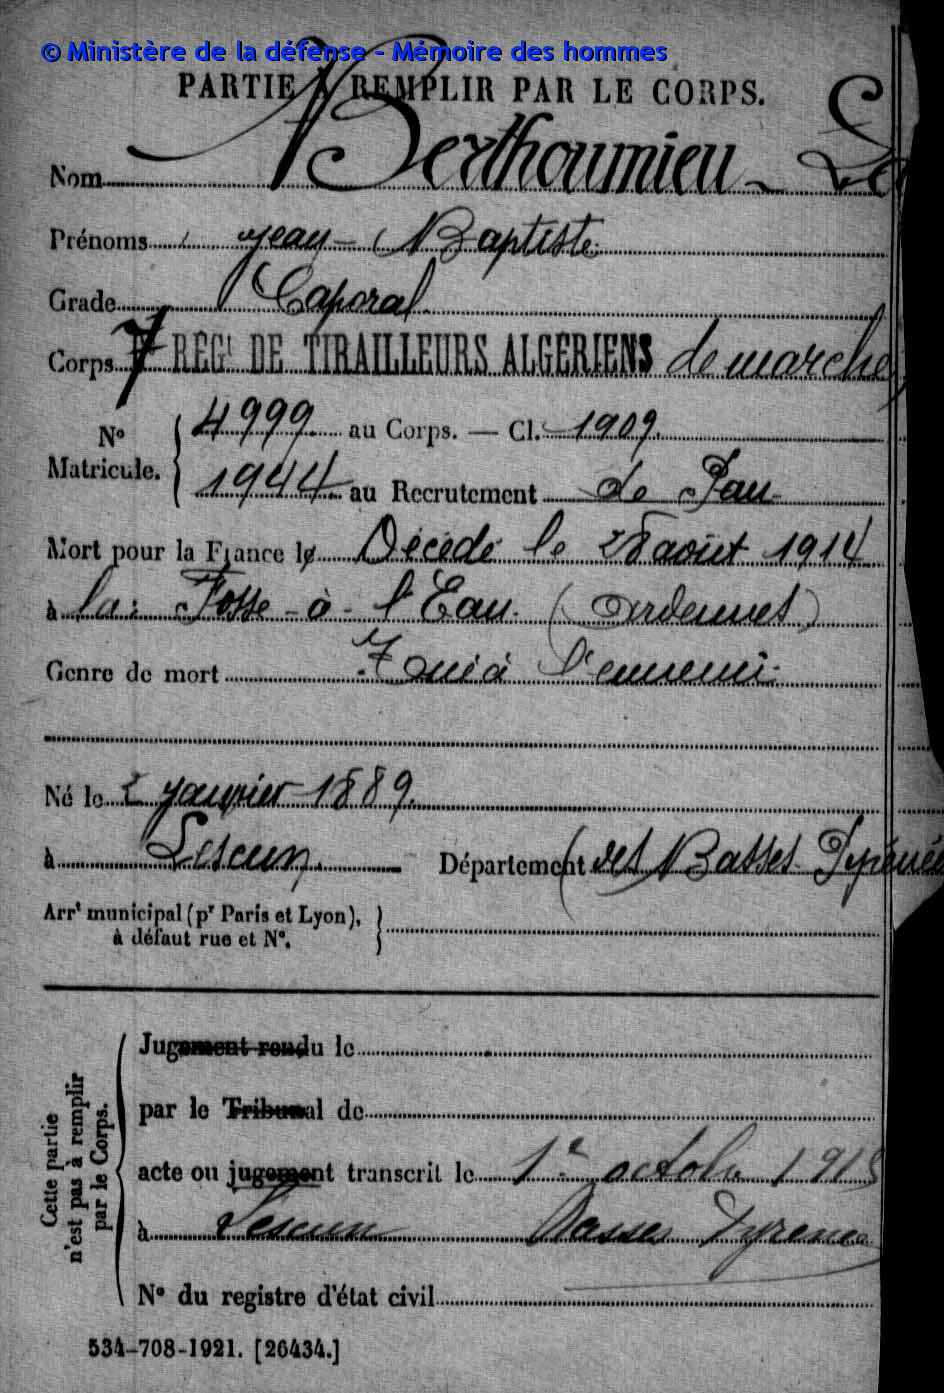 © Ministère de la défense - Mémoire des hommes
PARTIE À REMPLIR PAR LE CORPS.
Nom Berthoumieu
Prénoms Jean-Baptiste
Grade Caporal
Corps 7 RÉGt DE TIRAILLEURS ALGÉRIENS de marche
No Matricule. 4999 au Corps. — Cl. 1909.
1944 au Recrutement de Pau
Mort pour la France le Décédé le 28 août 1914
à la Fosse-à-l'Eau (Ardennes)
Genre de mort Tué à l'ennemi
Né le 2 janvier 1889.
à Lescun. Département (des Basses-Pyrénées
Arrt municipal (pr Paris et Lyon),
à défaut rue et No.
Cette partie n'est pas à remplir par le Corps.
Jugement rendu le
par le Tribunal de
acte ou jugement transcrit le 1er octobre 1915
à Lescun Basses Pyrénées
No du registre d'état civil
534-708-1921. [26434.]